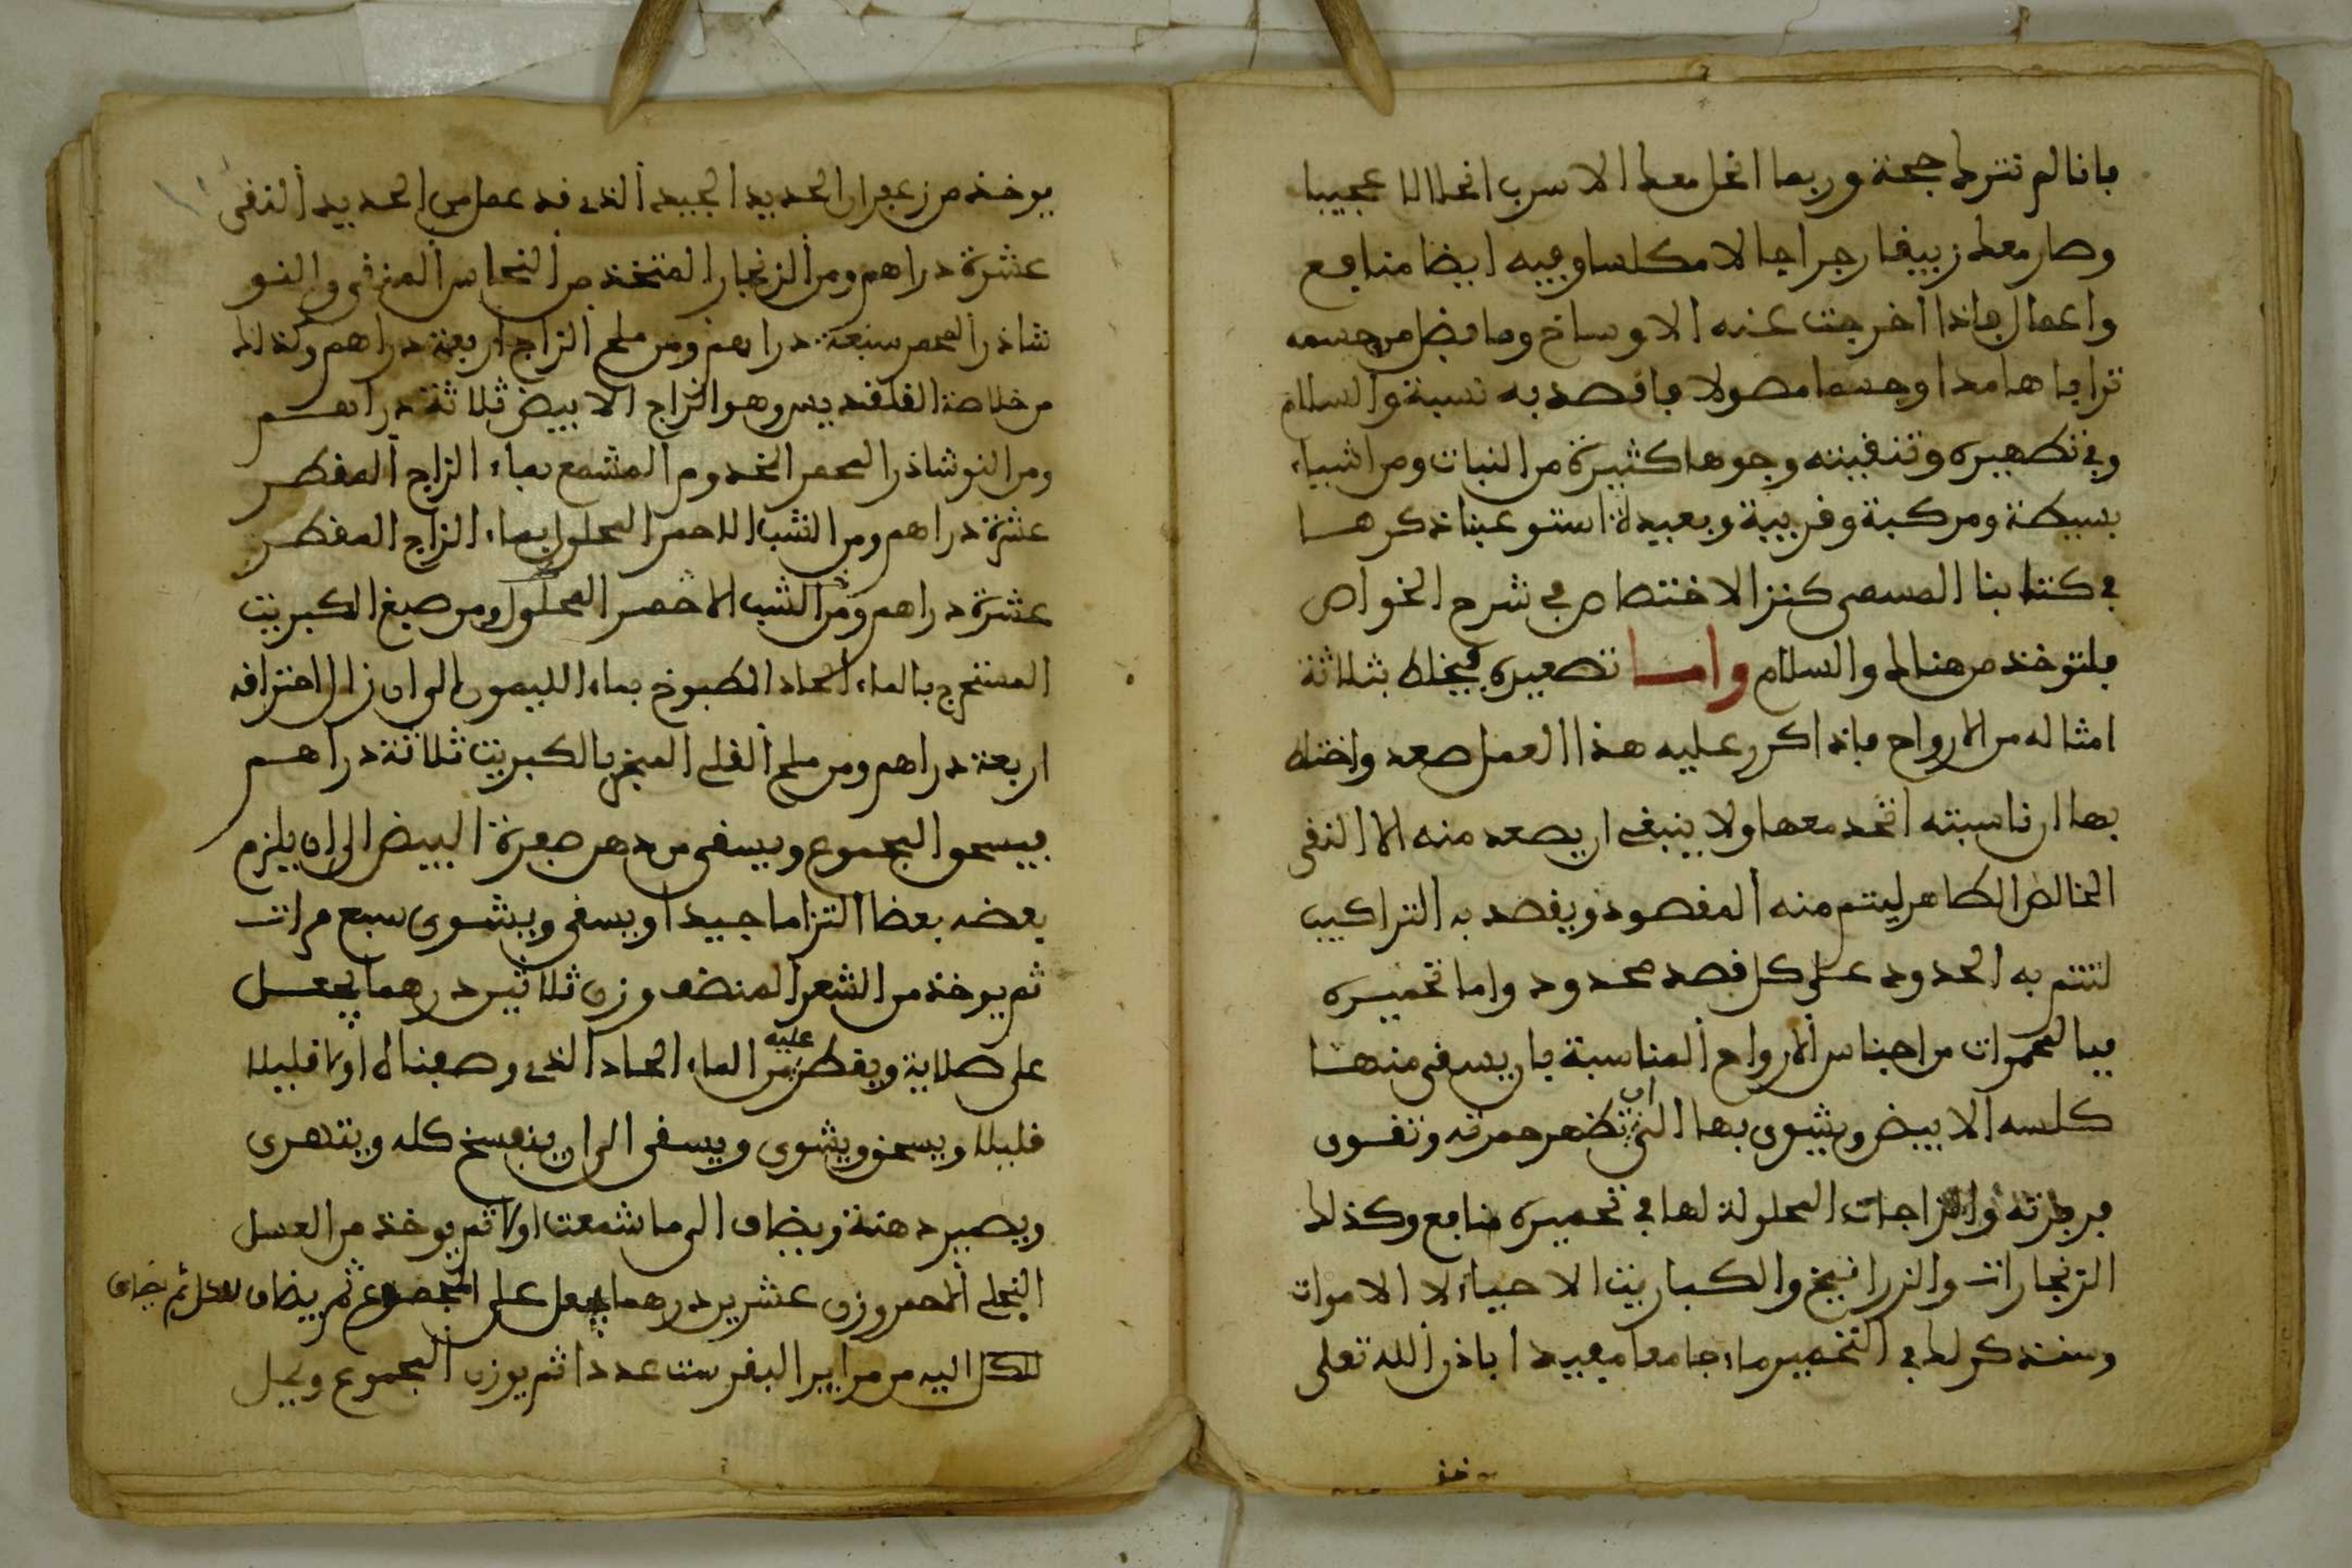 فانا لم نترك حجة وربما انحل معك الاسرب انحلالا عجيبا
وصار معك زيبقا رجراجا لا مكلسا وفيه ايضا منافع
واعمال فاذا اخرجت عنه الاوساخ وما فضل من جسمه
ترابا هامدا وجسما محمولا فاقصد به نسبة والسلام
وفي تطهيره وتنقيته وجوها كثيرة من النبات ومن اشياء
بسيطة ومركبة وقريبة وبعيدة استوعبنا ذكرها
في كتابنا المسمى كنز الاختصاص في شرح الخواص
فلتوخذ من هنالك والسلام واما تصعيده فيخلط بثلاثة
امثاله من الارواح فاذا كرر عليه هذا العمل صعد واختلط
بها ان ناسبته اتحد معها ولا ينبغي ان يصعد منه الا النقي
الخالص الطاهر ليتم منه المقصود ويقصد به التراكيب
لتتم به الحدود على كل قصد محدود واما تحميره
فبالمحمرات من اجناس الارواح المناسبة بان يسقى منها
كلسه الابيض ويشوى بها الى ان تظهر حمرته وتقوى
فرطزته والزاجات المحلولة لها في تحميره منافع وكذلك
الزنجارات والزرانيخ والكباريت الاحياء لا الاموات
وسنذكر لك في التخمير ماء جامعا مفيدا باذن الله تعلى
يوخذ من زعفران الحديد الجيد الذي قد عمل من الحديد النقي
عشرة دراهم ومن الزنجار المتخذ من النحاس المنقى والنو
شاذر المحمر سبعة دراهم ومن ملح الزاج اربعة دراهم وكذلك
من خلاصة القلقنديس وهو الزاج الابيض ثلاثة دراهم
ومن النوشاذر المحمر المخدوم المشمع بماء الزاج المقطر
عشرة دراهم ومن الشب الاحمر المحلول بماء الزاج المقطر
عشرة دراهم ومن الشب الاخضر المحلول ومن صبغ الكبريت
المستخرج بالماء الحاد المطبوخ بماء الليمون الى ان زال احتراقه
اربعة دراهم ومن ملح القلي المبخر بالكبريت ثلاثة دراهم
فيسحق المجموع ويسقى من دهن صفرة البيض الى ان يلزم
بعضه بعضا التزاما جيدا ويسقى ويشوى سبع مرات
ثم يوخذ من الشعر المنظف وزن ثلاثين درهما يجعل
على صلاية ويقطر عليه من الماء الحاد الذي وصفناه اولا قليلا
قليلا ويسحق ويشوى ويسقى الى ان ينفسخ كله ويتهرى
ويصير دهنة ويضاف الى ما شمعت اولا ثم يوخذ من العسل
النحلي الاحمر وزن عشرين درهما يجعل على المجموع ثم يضاف
لكل اليه من مراير البقر ست عددا ثم يوزن المجموع ويجعل